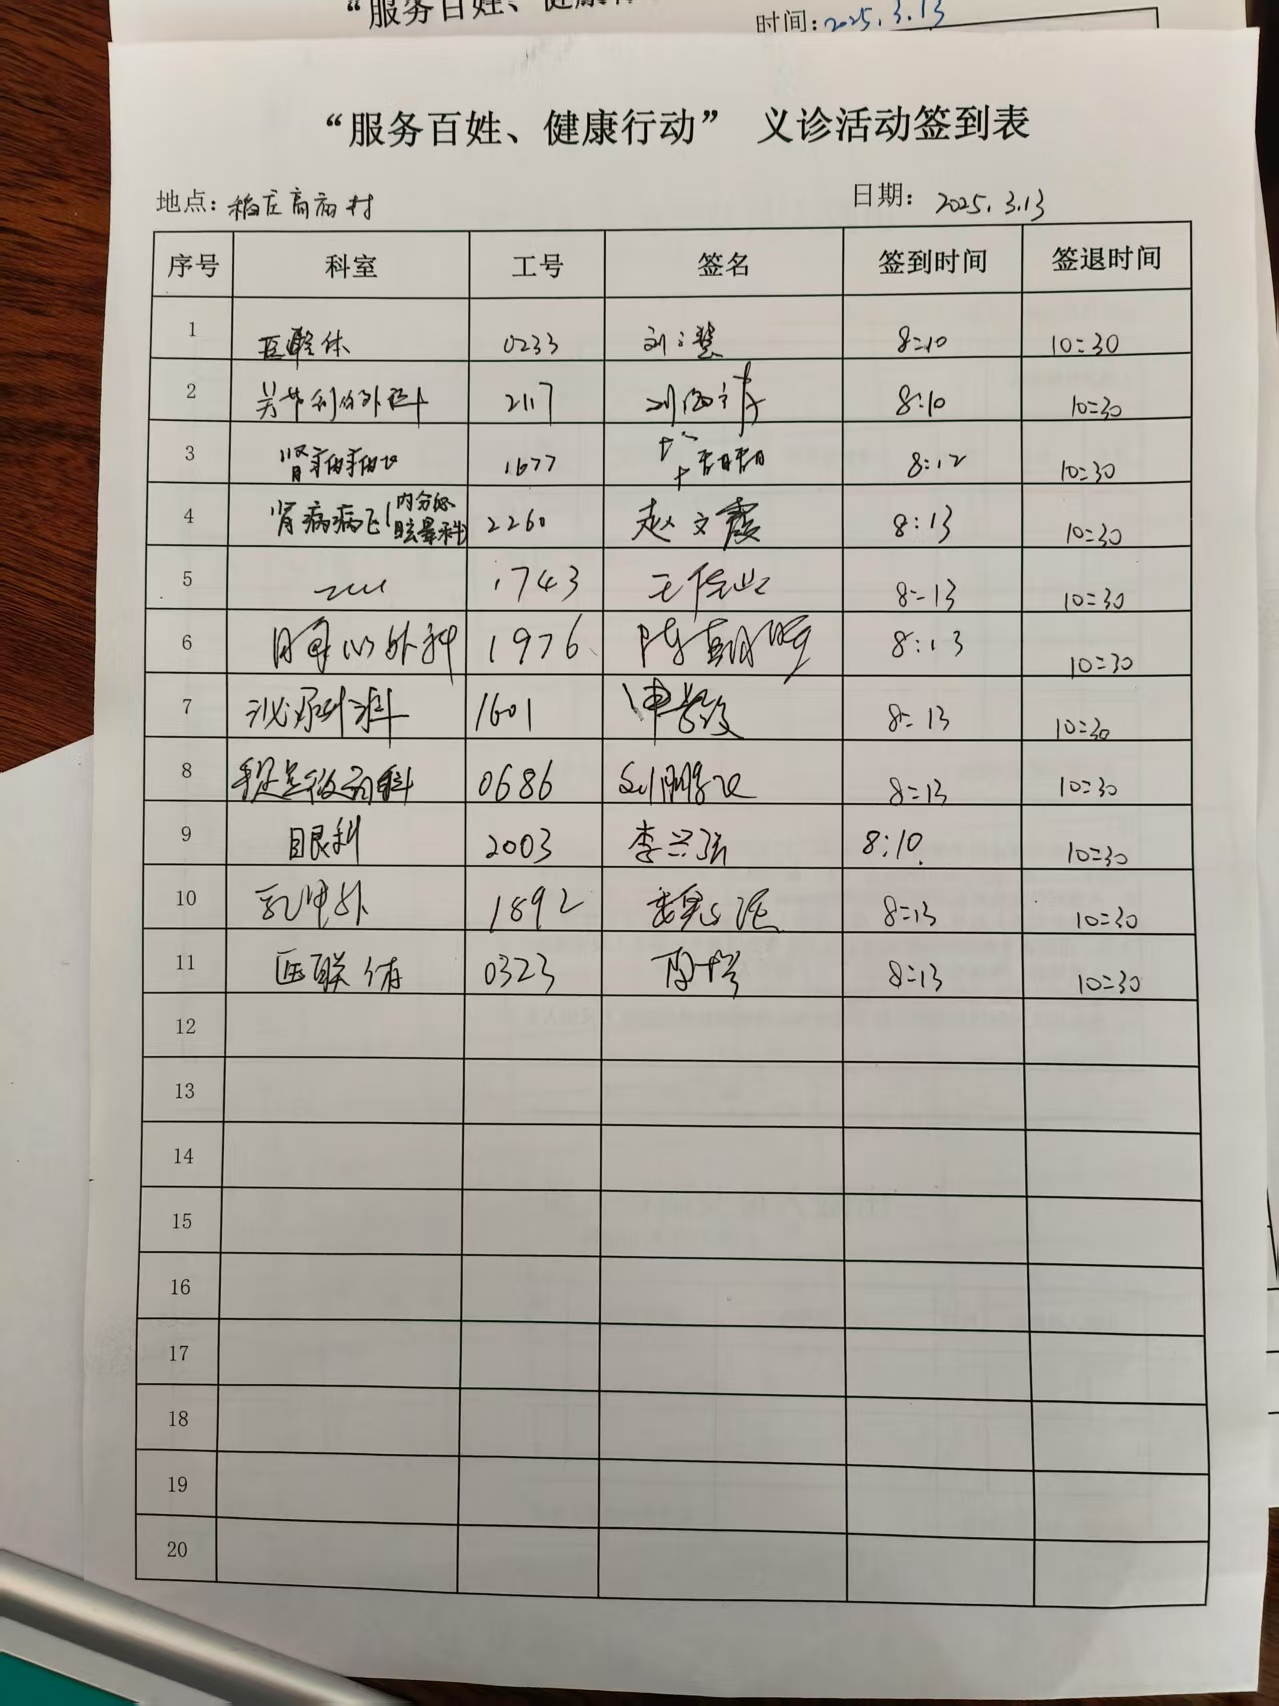 “服务百姓、健康
时间:2025.3.13
“服务百姓、健康行动” 义诊活动签到表
地点: 日期: 2025.3.13
序号 科室 工号 签名 签到时间 签退时间
1 医联体 0233 8:10 10:30
2 2117 8:10 10:30
3 肾病病区 1677 8:12 10:30
4 肾病病区(内分泌眩晕科) 2260 赵文霞 8:13 10:30
5 1743 8:13 10:30
6 胸心外科 1976 8:13 10:30
7 泌尿外科 1601 8:13 10:30
8 0686 8:13 10:30
9 眼科 2003 李兴强 8:10 10:30
10 乳甲外 1892 8:13 10:30
11 医联体 0323 8:13 10:30
12
13
14
15
16
17
18
19
20